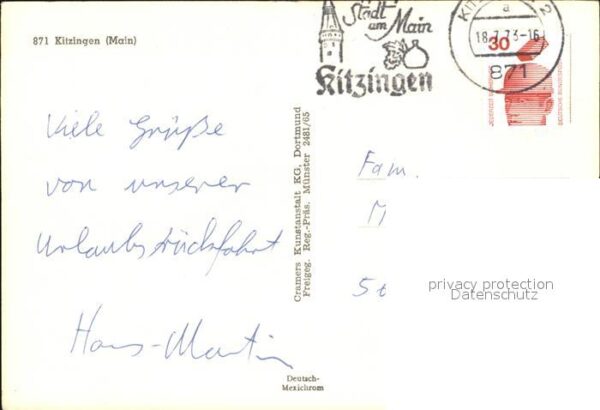 871 Kitzingen (Main)
Stadt
am Main
Kitzingen
18.7.73-16
871
30
JEDERZEIT SICHERHEIT
DEUTSCHE BUNDESPOST
Viele Grüße
von unserer
Urlaubsrückfahrt
Hans-Martin
Cramers Kunstanstalt KG, Dortmund
Freigeg. Reg.-Präs. Münster 2481/65
Fam.
M
5
privacy protection
Datenschutz
Deutsch-
Mexichrom